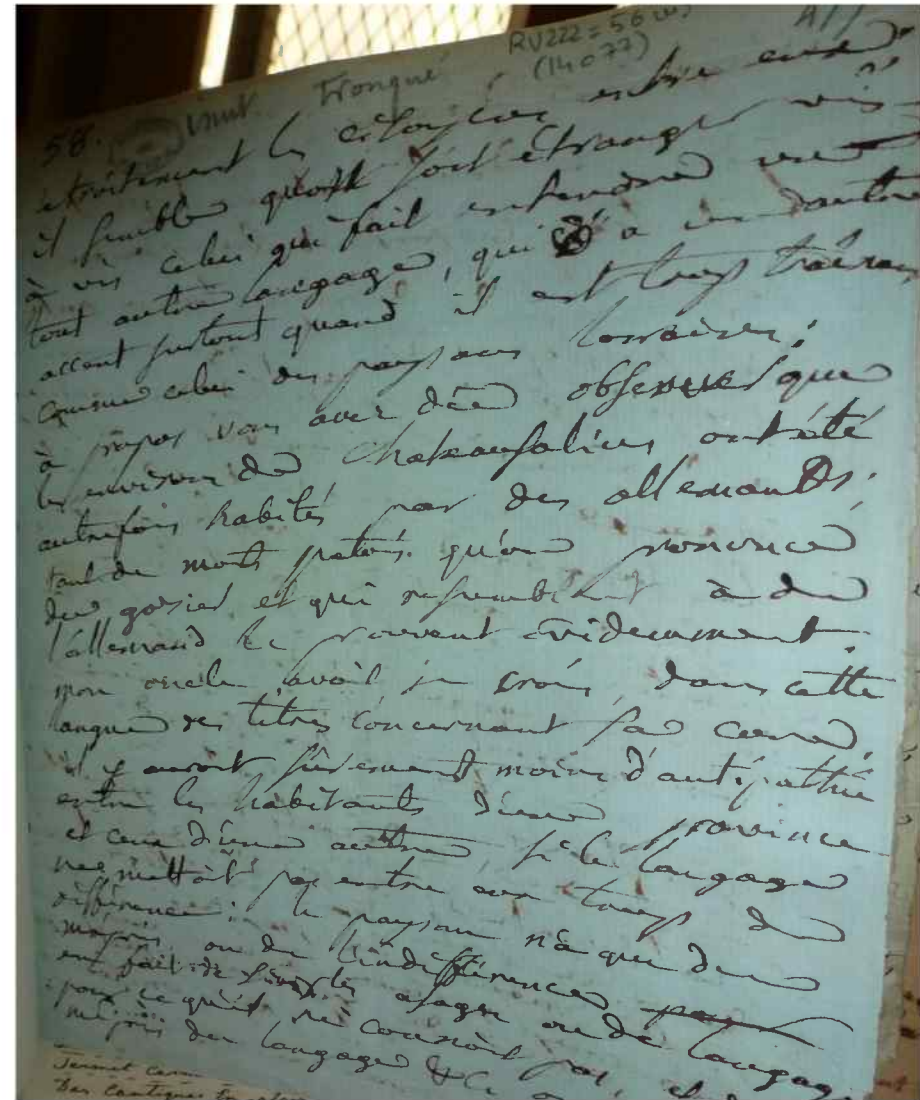 RV222 = 56
(14077)
A11
58.
Tronqué
étroitement les citoyens entre eux
il semble qu'on soit étranger vis
à vis celui qui fait entendre un
tout autre langage, qui a un autre
accent surtout quand il est trop traina
comme celui des paysans lorrains;
à propos vous avez dèû observer que
les environs de Chateausalins ont été
autrefois habités par des allemands;
tant de mots patois qu'on prononce
du gosier et qui ressemblent à de
l'allemand le prouvent évidemment.
mon oncle avoit je crois, dans cette
langue des titres concernant sa cure,
il y auroit sûrement moins d'antipathie
entre les habitants d'une province
et ceux d'une autre, si le langage
ne mettoit pas entre eux trop de
différence: le paysan n'a que du
mépris ou de l'indifférence
en fait de usages ou de langage
pour ce qu'il ne connoit pas, et
mépris du langage &c